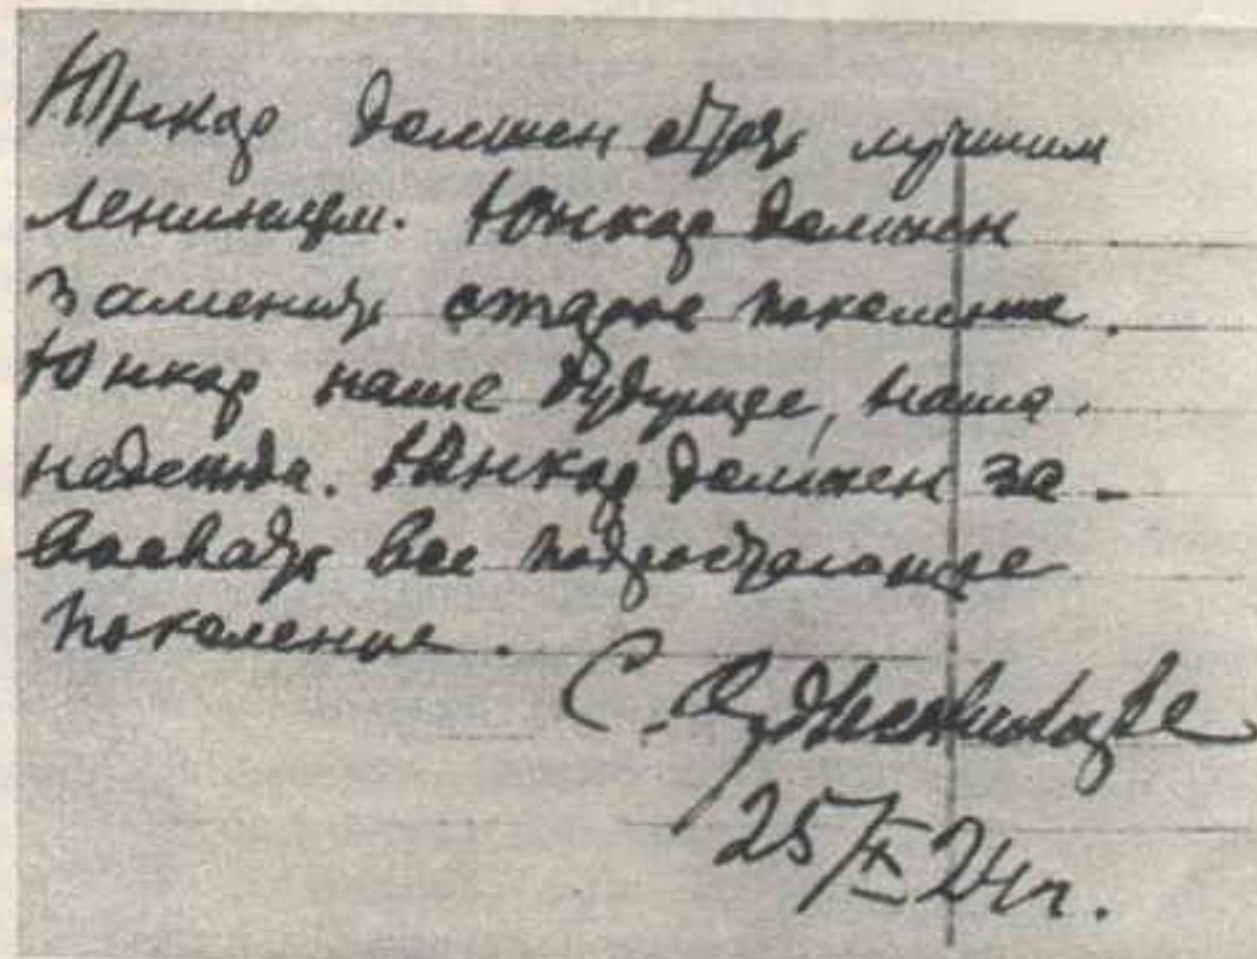 Юнкор должен быть лучшим
ленинцем. Юнкор должен
заменить старое поколение.
Юнкор наше будущее, наша
надежда. Юнкор должен за-
воевать все подростающее
поколение.
С. Орджоникидзе
25/X 24 г.